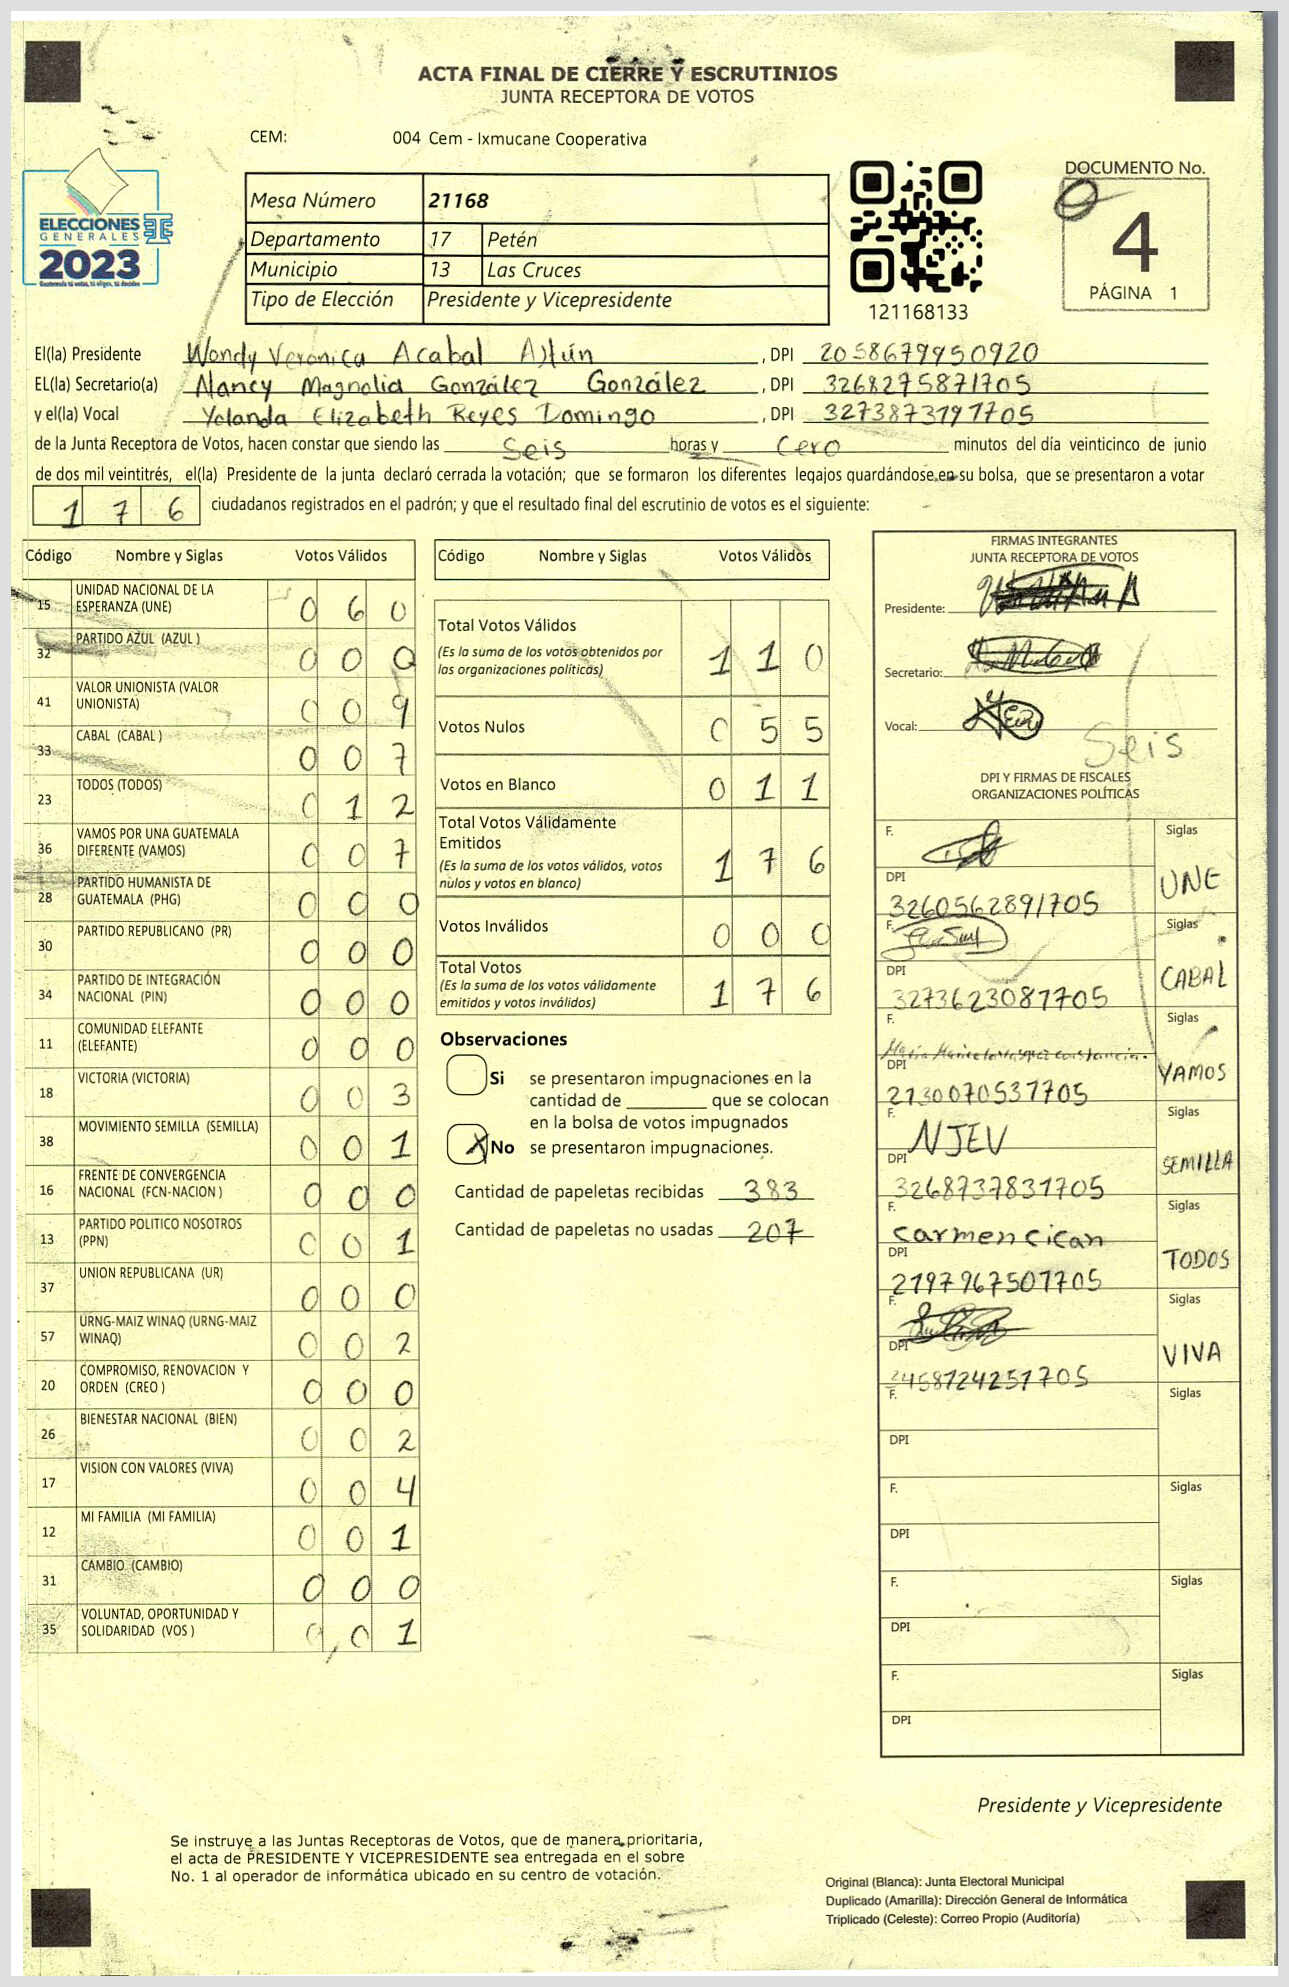 ACTA FINAL DE CIERRE Y ESCRUTINIOS
JUNTA RECEPTORA DE VOTOS
CEM: 004 Cem - Ixmucane Cooperativa
ELECCIONES
GENERALES
2023
Guatemala tú votas, tú eliges, tú decides
Mesa Número 21168
Departamento 17 Petén
Municipio 13 Las Cruces
Tipo de Elección Presidente y Vicepresidente
121168133
DOCUMENTO No.
4
PÁGINA 1
El(la) Presidente Wendy Veronica Acabal , DPI 2058679950920
EL(la) Secretario(a) Nancy Magnolia González González , DPI 3268275871705
y el(la) Vocal Yolanda Elizabeth Reyes Domingo , DPI 3273873191705
de la Junta Receptora de Votos, hacen constar que siendo las Seis horas y Cero minutos del día veinticinco de junio
de dos mil veintitrés, el(la) Presidente de la junta declaró cerrada la votación; que se formaron los diferentes legajos guardándose en su bolsa, que se presentaron a votar
1 7 6 ciudadanos registrados en el padrón; y que el resultado final del escrutinio de votos es el siguiente:
Código Nombre y Siglas Votos Válidos
15 UNIDAD NACIONAL DE LA ESPERANZA (UNE) 0 6 0
32 PARTIDO AZUL (AZUL ) 0 0 0
41 VALOR UNIONISTA (VALOR UNIONISTA) 0 0 9
33 CABAL (CABAL ) 0 0 7
23 TODOS (TODOS) 0 1 2
36 VAMOS POR UNA GUATEMALA DIFERENTE (VAMOS) 0 0 7
28 PARTIDO HUMANISTA DE GUATEMALA (PHG) 0 0 0
30 PARTIDO REPUBLICANO (PR) 0 0 0
34 PARTIDO DE INTEGRACIÓN NACIONAL (PIN) 0 0 0
11 COMUNIDAD ELEFANTE (ELEFANTE) 0 0 0
18 VICTORIA (VICTORIA) 0 0 3
38 MOVIMIENTO SEMILLA (SEMILLA) 0 0 1
16 FRENTE DE CONVERGENCIA NACIONAL (FCN-NACION ) 0 0 0
13 PARTIDO POLITICO NOSOTROS (PPN) 0 0 1
37 UNION REPUBLICANA (UR) 0 0 0
57 URNG-MAIZ WINAQ (URNG-MAIZ WINAQ) 0 0 2
20 COMPROMISO, RENOVACION Y ORDEN (CREO ) 0 0 0
26 BIENESTAR NACIONAL (BIEN) 0 0 2
17 VISION CON VALORES (VIVA) 0 0 4
12 MI FAMILIA (MI FAMILIA) 0 0 1
31 CAMBIO (CAMBIO) 0 0 0
35 VOLUNTAD, OPORTUNIDAD Y SOLIDARIDAD (VOS ) 0 0 1
Código Nombre y Siglas Votos Válidos
Total Votos Válidos 1 1 0
(Es la suma de los votos obtenidos por
las organizaciones políticas)
Votos Nulos 0 5 5
Votos en Blanco 0 1 1
Total Votos Válidamente
Emitidos 1 7 6
(Es la suma de los votos válidos, votos
nulos y votos en blanco)
Votos Inválidos 0 0 0
Total Votos 1 7 6
(Es la suma de los votos válidamente
emitidos y votos inválidos)
Observaciones
Si se presentaron impugnaciones en la
cantidad de ________ que se colocan
en la bolsa de votos impugnados
X No se presentaron impugnaciones.
Cantidad de papeletas recibidas 383
Cantidad de papeletas no usadas 207
FIRMAS INTEGRANTES
JUNTA RECEPTORA DE VOTOS
Presidente:
Secretario:
Vocal:
Seis
DPI Y FIRMAS DE FISCALES
ORGANIZACIONES POLÍTICAS
F. Siglas
DPI 3260562891705 UNE
F. Siglas
DPI 3273623081705 CABAL
F. Siglas
DPI 2130070531705 VAMOS
F. NJEV Siglas
DPI 3268737831705 SEMILLA
F. carmen cican Siglas
DPI 2197967501705 TODOS
F. Siglas
DPI 2458124251705 VIVA
F. Siglas
DPI
F. Siglas
DPI
F. Siglas
DPI
F. Siglas
DPI
Presidente y Vicepresidente
Se instruye a las Juntas Receptoras de Votos, que de manera prioritaria,
el acta de PRESIDENTE Y VICEPRESIDENTE sea entregada en el sobre
No. 1 al operador de informática ubicado en su centro de votación.
Original (Blanca): Junta Electoral Municipal
Duplicado (Amarilla): Dirección General de Informática
Triplicado (Celeste): Correo Propio (Auditoría)